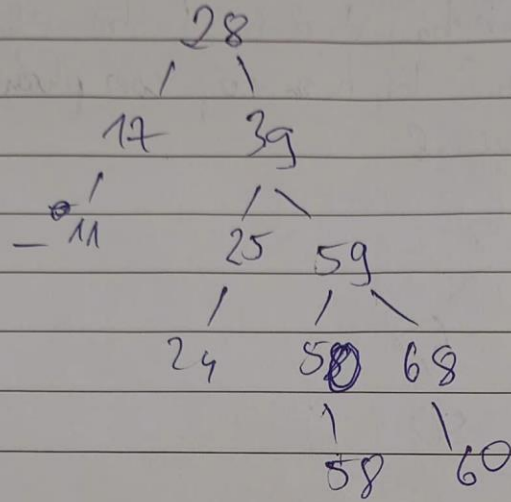 28
17 39
- 11 25 59
24 50 68
58 60